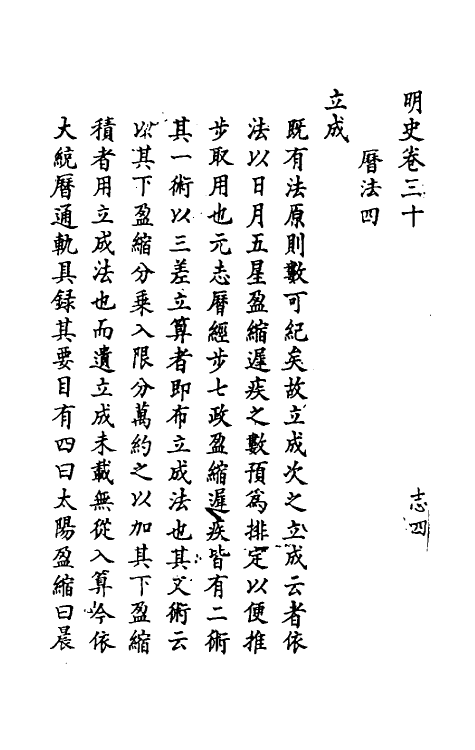 明史卷三十
曆法四
志四
立成
既有法原則數可紀矣故立成次之立成云者依
法以日月五星盈縮遲疾之數預爲排定以便推
步取用也元志曆經步七政盈縮遲疾皆有二術
其一術以三差立算者即布立成法也其又術云
以其下盈縮分乘入限分萬約之以加其下盈縮
積者用立成法也而遺立成未載無從入算今依
大統曆通軌具録其要目有四曰太陽盈縮曰晨